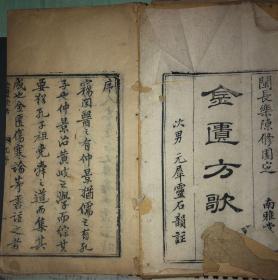 閩長樂陳修園定
金匱方歌
次男元犀靈石韻註
南雅堂
序
竊聞醫之有仲景猶儒之有孔
子也仲景治黃岐之學而綜其
要猶孔子祖堯舜之道而集其
成也金匱傷寒論等書註之者